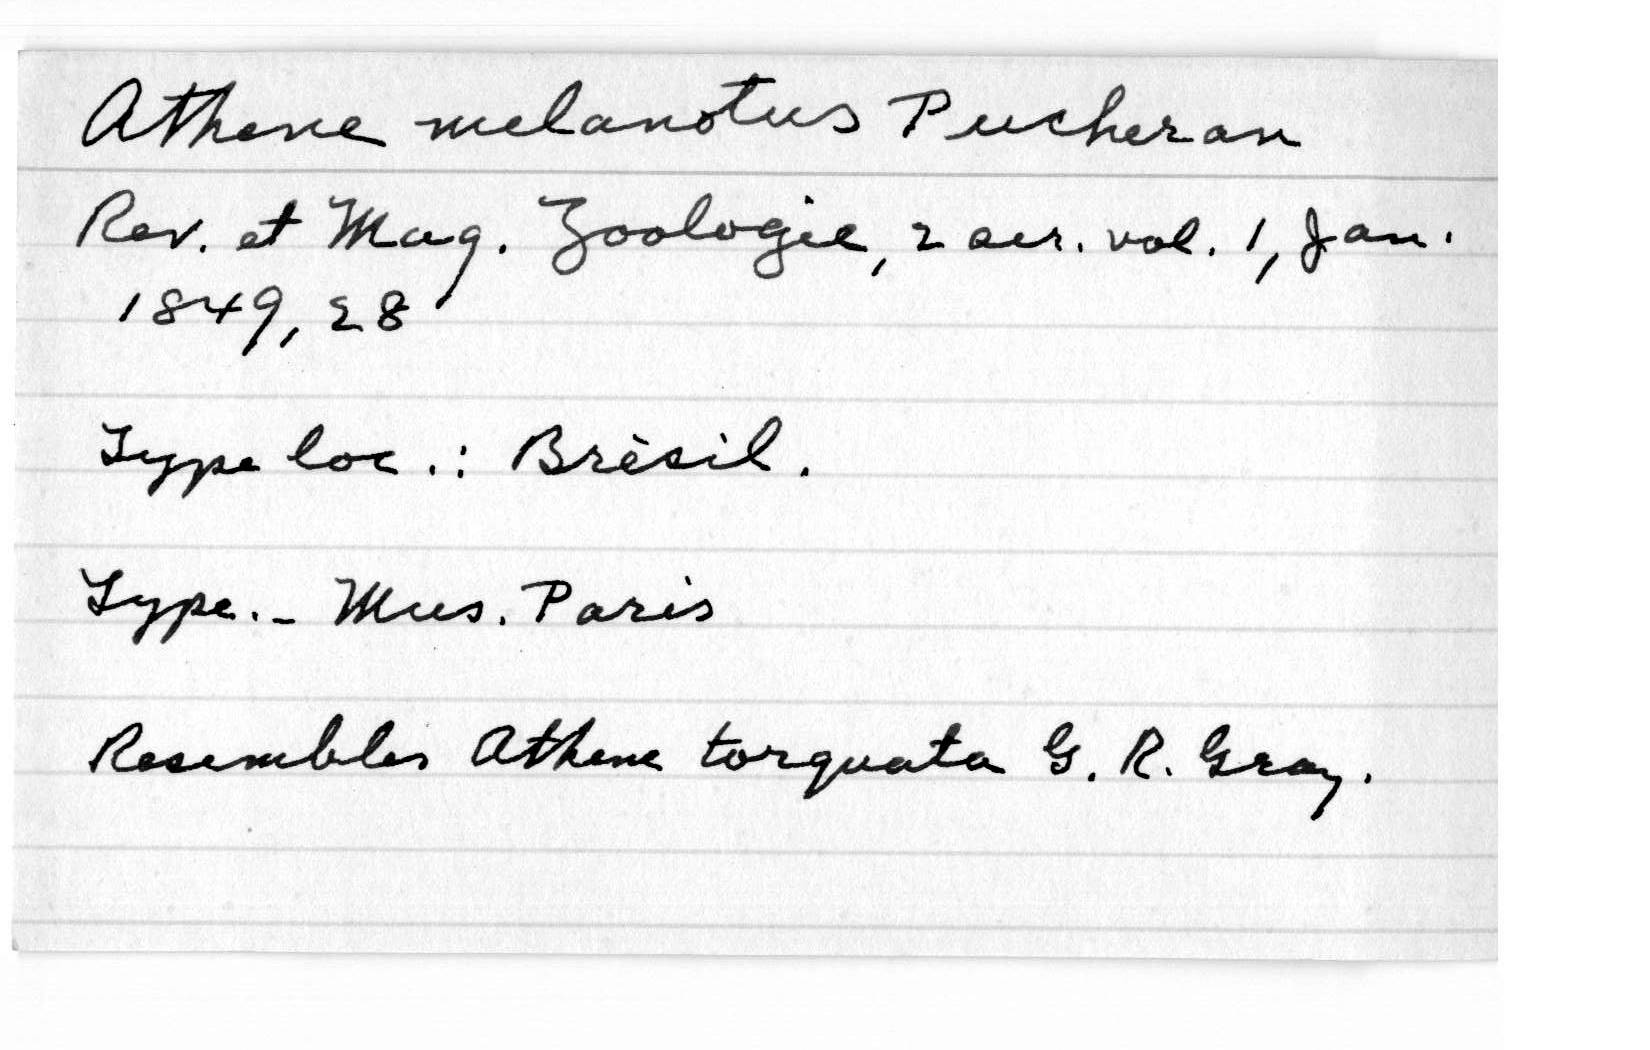 Athene melanotus Pucheran
Rev. et Mag. Zoologie, 2 ser. vol. 1, Jan.
1849, 28
Type loc.: Brèsil.
Type.- Mus. Paris
Resembles Athene torquata G. R. Gray.